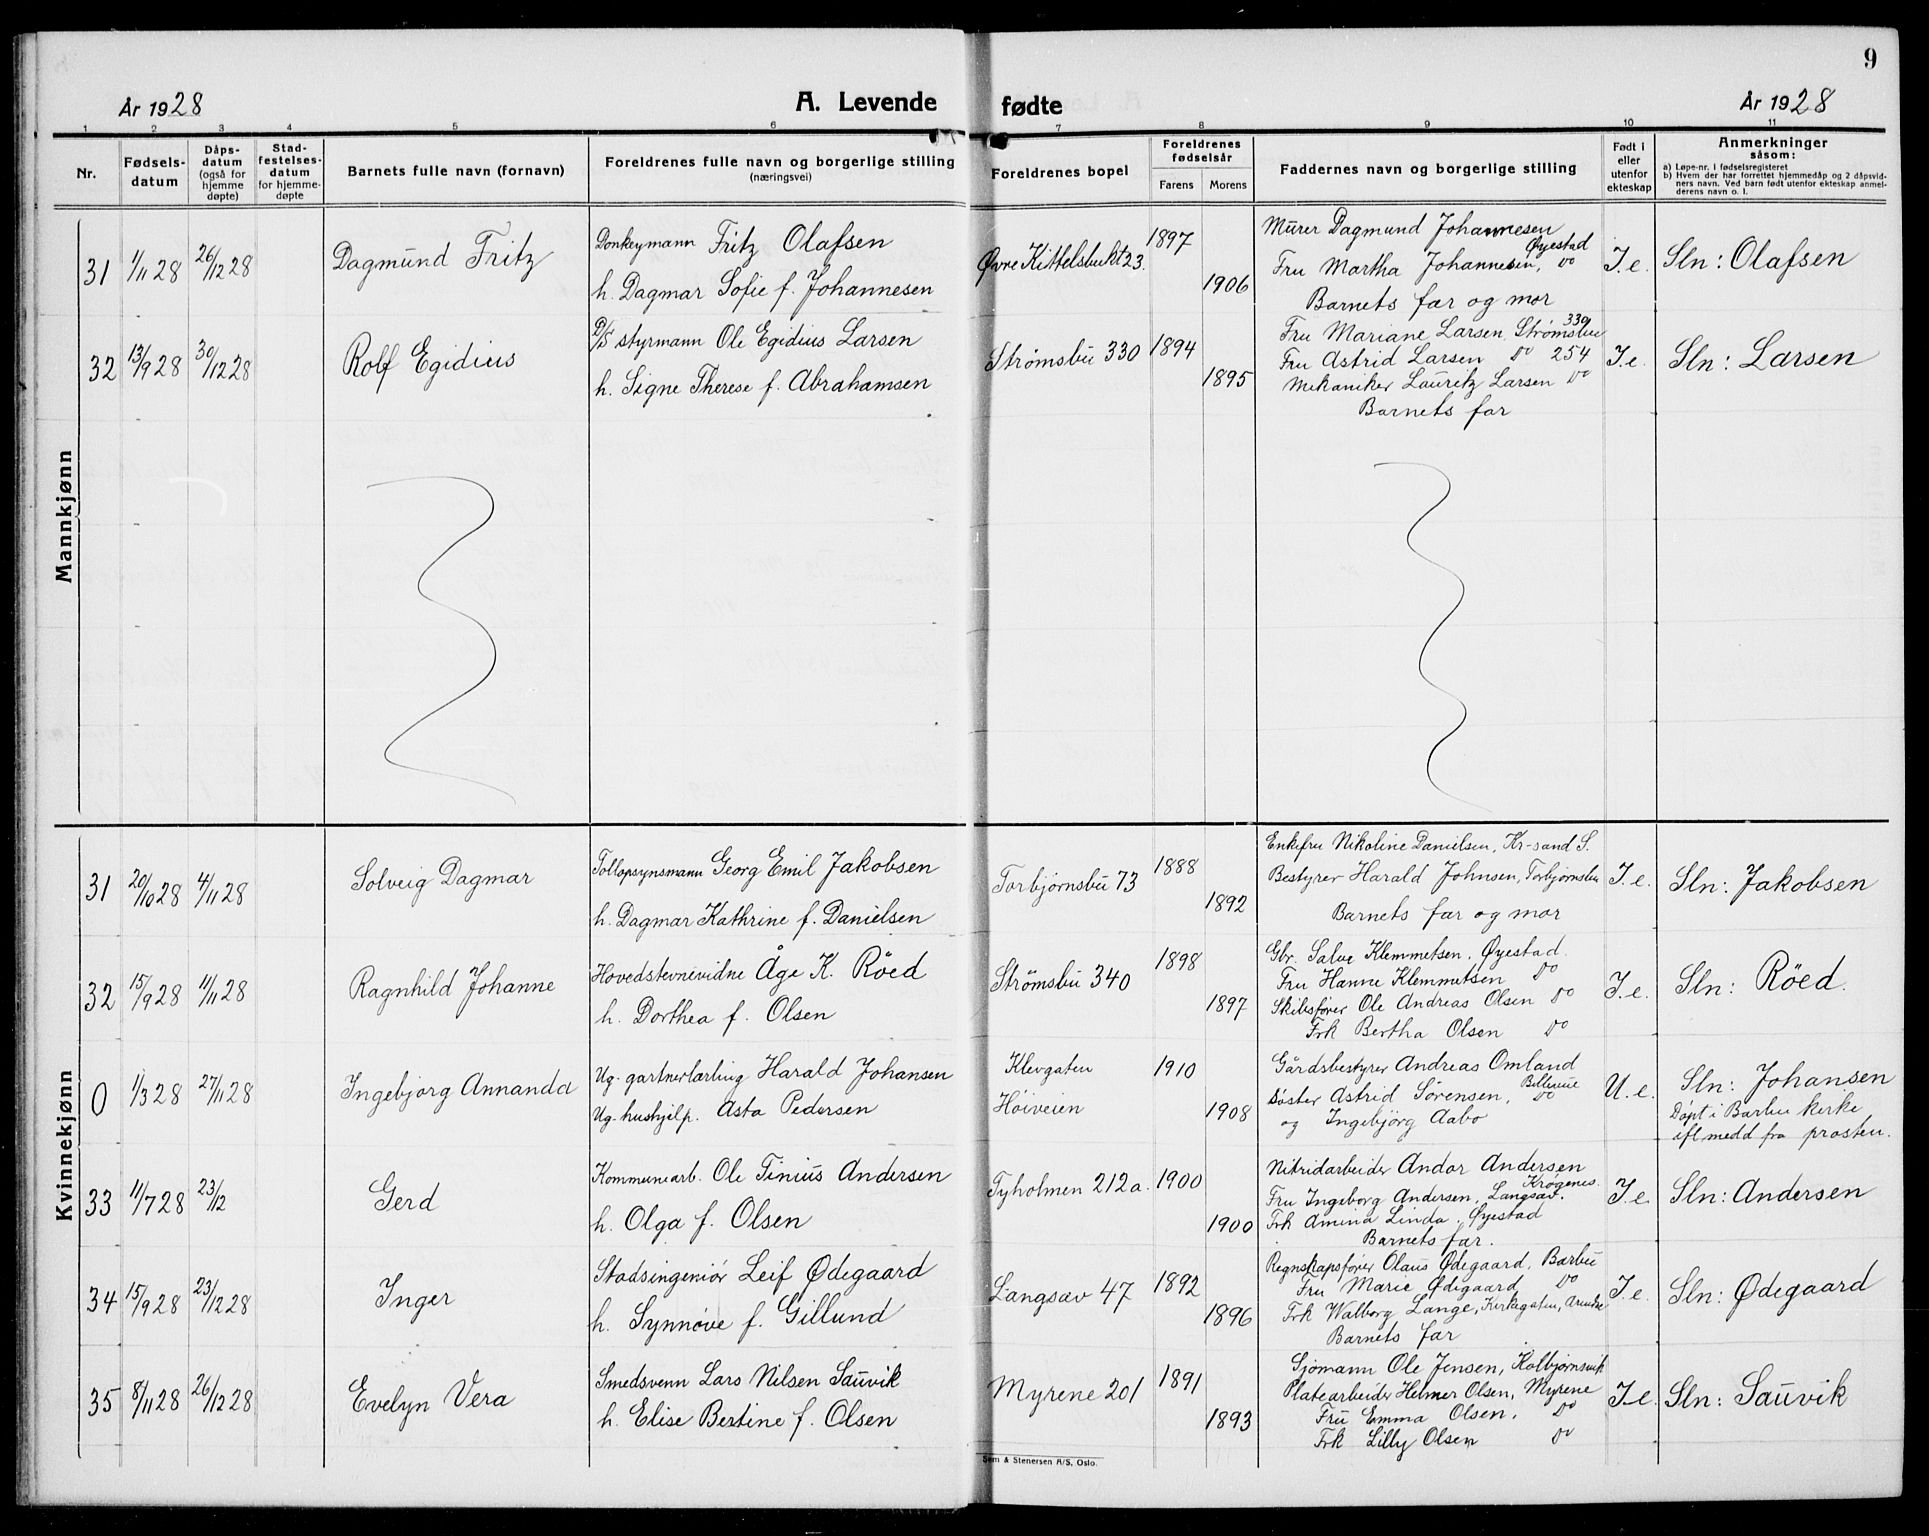 9
År 1928
A. Levende fødte
År 1928
1 2 3 4 5 6 7 8 9 10 11
Nr.
Fødsels-
datum
Dåps-
datum
(også for
hjemme
døpte)
Stad-
festelses-
datum
for hjemme-
døpte
Barnets fulle navn (fornavn)
Foreldrenes fulle navn og borgerlige stilling
(næringsvei)
Foreldrenes bopel
Foreldrenes
fødselsår
Farens Morens
Faddernes navn og borgerlige stilling
Født i
eller
utenfor
ekteskap
Anmerkninger
såsom:
a) Løpe-nr. i fødselsregisteret
b) Hvem der har forrettet hjemmedåp og 2 dåpsvid-
ners navn. Ved barn født utenfor ekteskap anmel-
derens navn o. l.
Mannkjønn
31 1/11 28 26/12 28
Dagmund Fritz
Donkeymann Fritz Olafsen
h. Dagmar Sofie f. Johannesen
Øvre Kittelsbukt 23.
1897
1906
Murer Dagmund Johannesen
Øyestad
Fru Martha Johannesen, do
Barnets far og mor
I. e.
Sln: Olafsen
32 13/9 28 30/12 28
Rolf Egidius
D/S styrmann Ole Egidius Larsen
h. Signe Therese f. Abrahamsen
Strømsbu 330
1894
1895
330
Fru Mariane Larsen, Strømsbu
Fru Astrid Larsen do 254
Mekaniker Lauritz Larsen do
Barnets far
I. e.
Sln: Larsen
Kvinnekjønn
31 20/10 28 4/11 28
Solveig Dagmar
Tollopsynsmann Georg Emil Jakobsen
h. Dagmar Kathrine f. Danielsen
Torbjørnsbu 73
1888
1892
Enkefru Nikoline Danielsen, Kr-sand S.
Bestyrer Harald Johnsen, Torbjørnsbu
Barnets far og mor
I. e.
Sln: Jakobsen
32 15/9 28 11/11 28
Ragnhild Johanne
Hovedstevnevidne Åge K. Röed
h. Dorthea f. Olsen
Strømsbu 340
1898
1897
Gbr. Salve Klemmetsen, Øyestad.
Fru Hanne Klemmetsen do
Skibsfører Ole Andreas Olsen do
Frk Bertha Olsen do
I. e.
Sln: Röed.
0 1/3 28 27/11 28
Ingebjorg Annanda
Ug. gartnerlærling Harald Johansen
Ug. hushjelp. Asta Pedersen
Klevgaten
Höiveien
1910
1908
Gårdsbestyrer Andreas Omland
Bellevue
Søster Astrid Sørensen, do
og Ingebjörg Aabo
U. e.
Sln: Johansen
Döpt i Barbu kirke
ifl medd fra prosten.
33 11/7 28 23/12
Gerd
Kommunearb. Ole Tinius Andersen
h. Olga f. Olsen
Tyholmen 212a.
1900
1900
Nitridarbeider Andor Andersen
Krøgenes.
Fru Ingeborg Andersen, Langsæv.
Frk Amina Linda, Øyestad
Barnets far.
I. e.
Sln: Andersen
34 15/9 28 23/12 28
Inger
Stadsingeniør Leif Ødegaard
h. Synnöve f. Gillund
Langsæv 47
1892
1896
Regnskapsfører Olaus Ødegaard, Barbu
Fru Marie Ødegaard do
Frk Walborg Lange, Kirkegaten, Arendal
Barnets far
I. e.
Sln: Ødegaard
35 8/11 28 26/12 28
Evelyn Vera
Smedsvenn Lars Nilsen Sauvik
h. Elise Bertine f. Olsen
Myrene 201
1891
1893
Sjømann Ole Jensen, Kolbjørnsvik
Platearbeider Helmer Olsen, Myrene
Fru Emma Olsen, do
Frk Lilly Olsen do
I. e.
Sln: Sauvik
Sem & Stenersen A/S, Oslo.